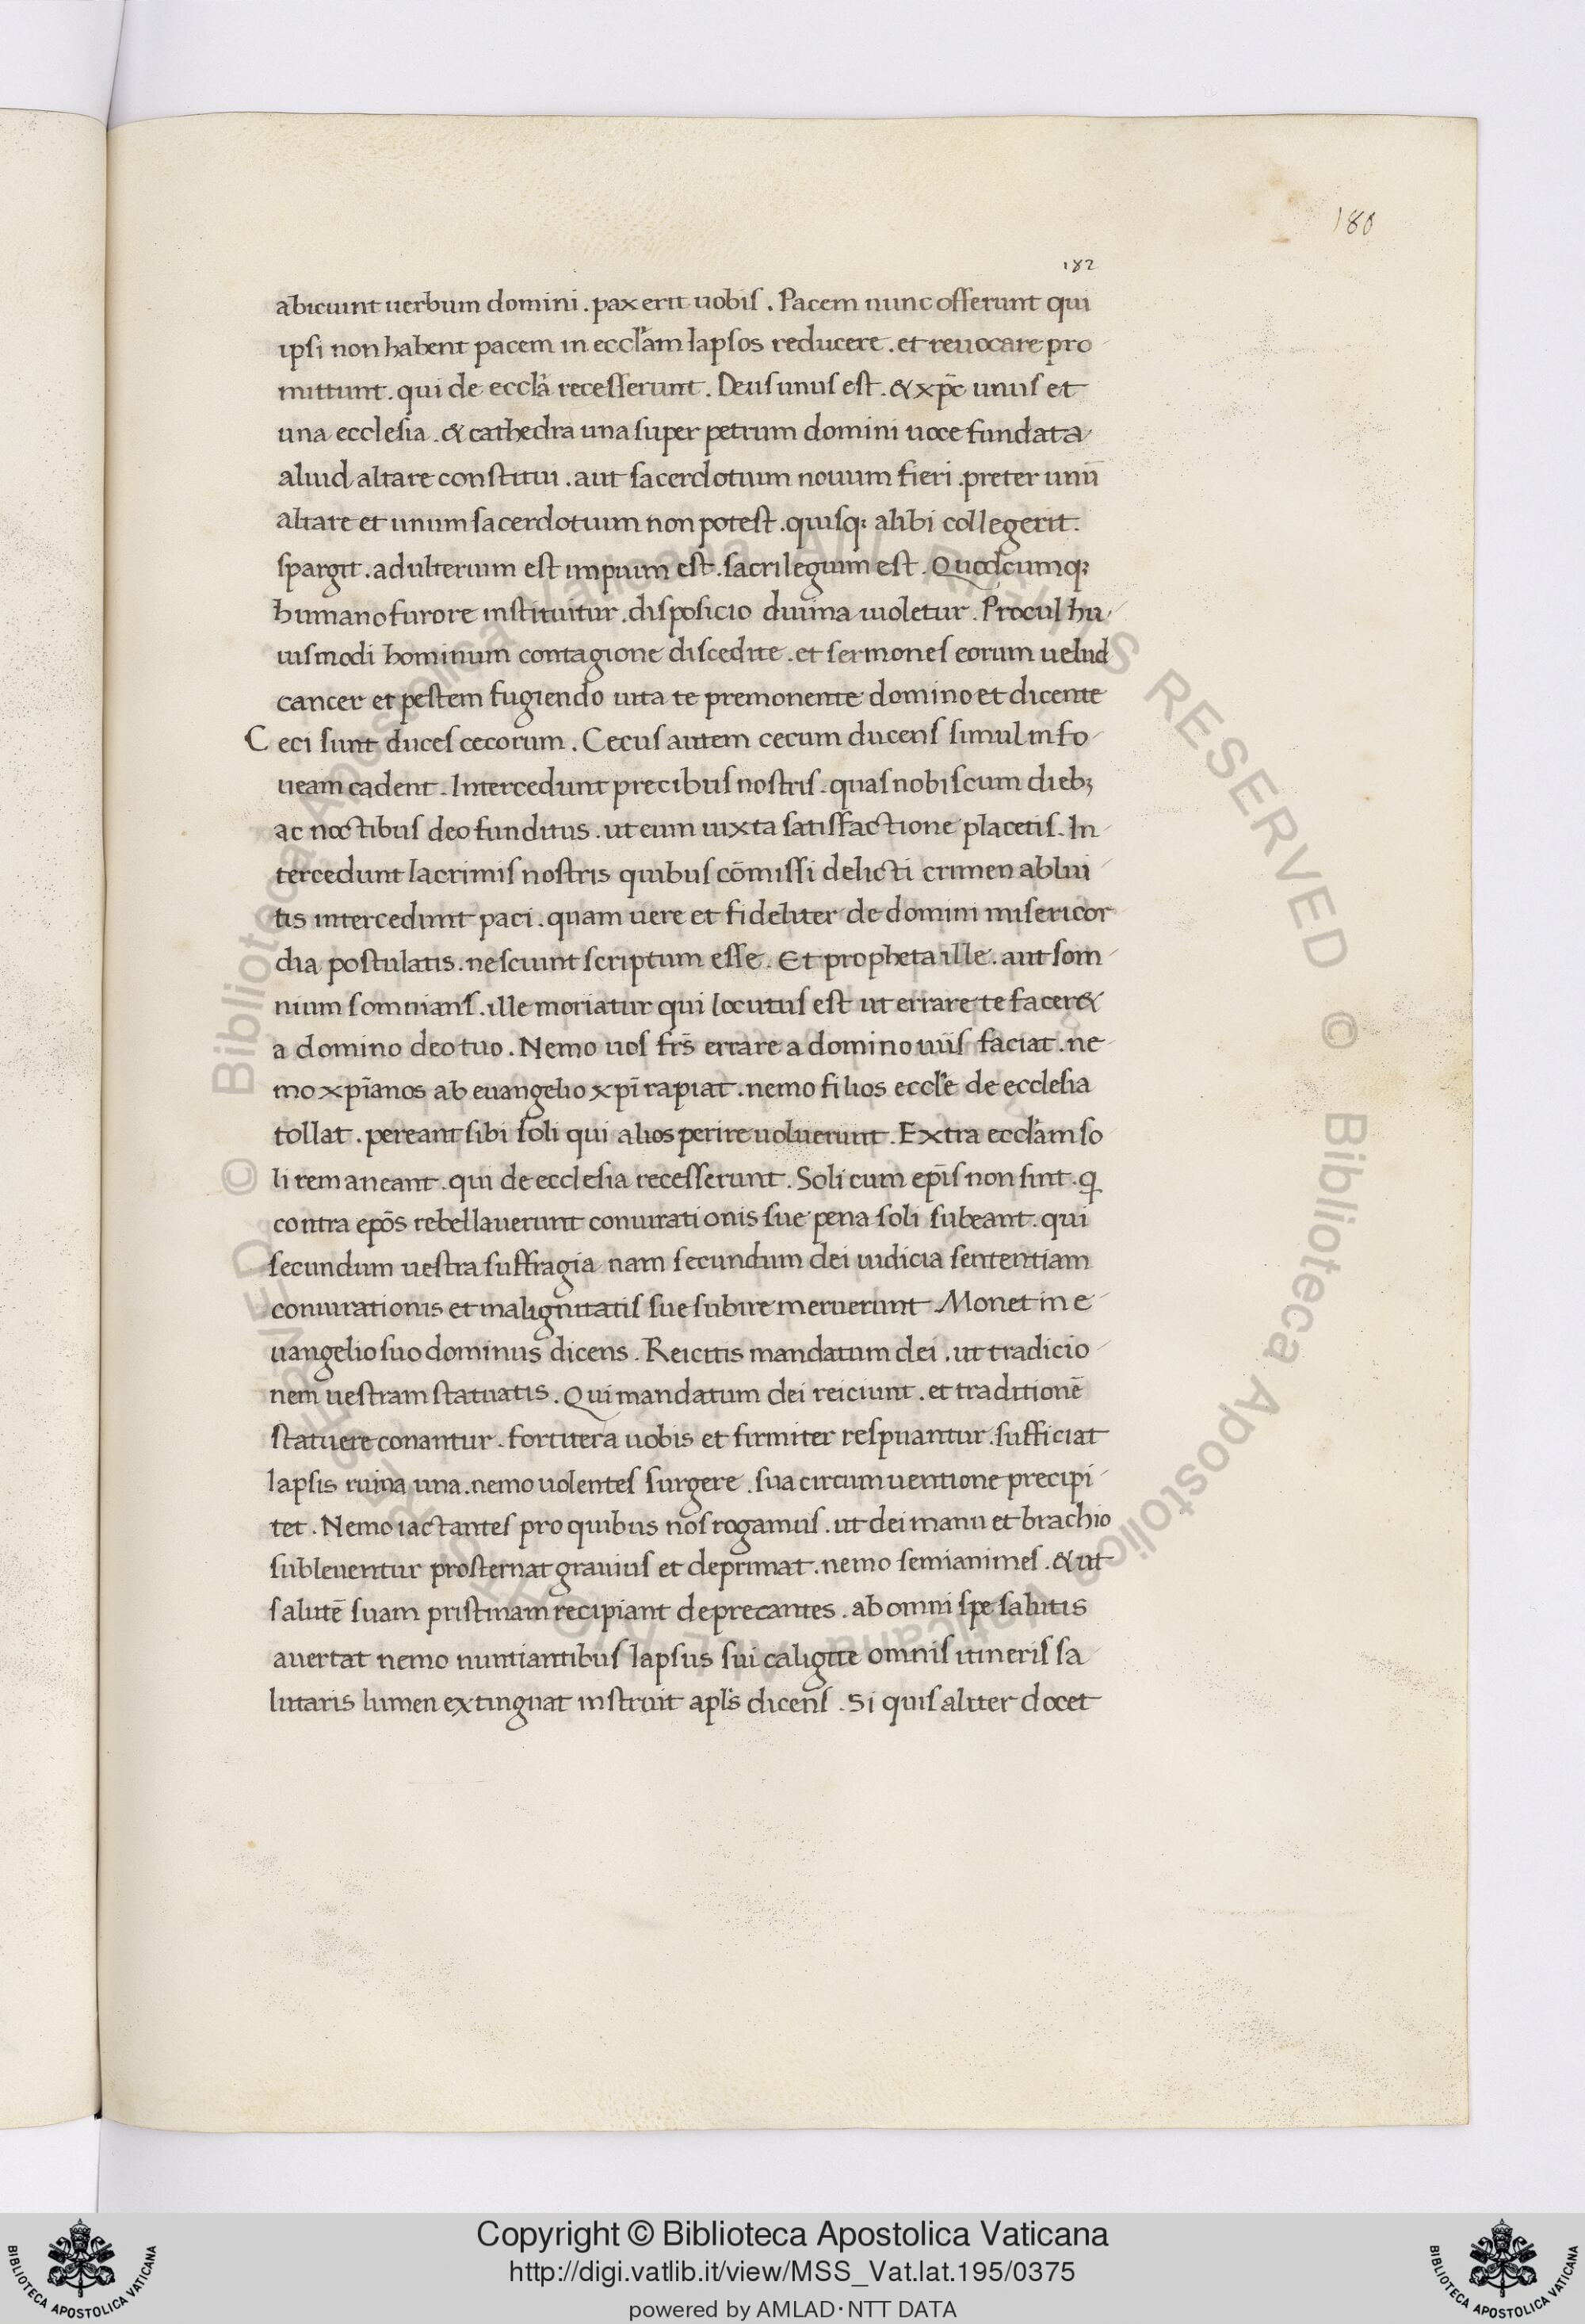 180
182
abiciunt uerbum domini . pax erit uobis . Pacem nunc offerunt qui
ipsi non habent pacem in eccl̄am lapsos reducere . et reuocare pro
mittunt . qui de eccl̄a recesserunt . Deus unus est . & xp̄c unus et
una ecclesia . & cathedra una super petrum domini uoce fundata
aliud altare constitui . aut sacerdotium nouum fieri . preter unū
altare et unum sacerdotium non potest . quisq; alibi collegerit .
spargit . adulterium est impium est . sacrilegium est . Quodcumq;
humano furore instituitur . disposicio diuina uioletur . Procul hu
iusmodi hominum contagione discedite . et sermones eorum uelud
cancer et pestem fugiendo uita te premonente domino et dicente
Ceci sunt duces cecorum . Cecus autem cecum ducens simul in fo
ueam cadent . Intercedunt precibus nostris . quas nobiscum dieb;
ac noctibus deo funditus . ut eum iuxta satisfactione placetis . In
tercedunt lacrimis nostris quibus cōmissi delicti crimen ablui
tis intercedunt paci . quam uere et fideliter de domini misericor
dia postulatis . nesciunt scriptum esse . Et propheta ille . aut som
nium somnians . ille moriatur qui locutus est ut errare te facer&
a domino deo tuo . Nemo uos fr̄s errare a domino uiis faciat . ne
mo xp̄ianos ab euangelio xp̄i rapiat . nemo filios eccl̄e de ecclesia
tollat . pereant sibi soli qui alios perire uoluerunt . Extra eccl̄am so
li remaneant . qui de ecclesia recesserunt . Soli cum ep̄is non sint . q
contra ep̄os rebellauerunt coniurationis sue pena soli subeant . qui
secundum uestra suffragia nam secundum dei iudicia sententiam
coniurationis et malignitatis sue subire meruerunt . Monet in e
uangelio suo dominus dicens . Reicitis mandatum dei . ut tradicio
nem uestram statuatis . Qui mandatum dei reiciunt . et traditionē
statuere conantur . fortiter a uobis et firmiter respuantur . sufficiat
lapsis ruina una . nemo uolentes surgere . sua circumuentione precipi
tet . Nemo iactantes pro quibus nos rogamus . ut dei manu et brachio
subleuentur prosternat grauius et deprimat . nemo semianimes . & ut
salutē suam pristinam recipiant deprecantes . ab omni spe salutis
auertat nemo nuntiantibus lapsus sui caligite omnis itineris sa
lutaris lumen extinguat instruit apl̄s dicens . Si quis aliter docet
Copyright © Biblioteca Apostolica Vaticana
http://digi.vatlib.it/view/MSS_Vat.lat.195/0375
powered by AMLAD·NTT DATA